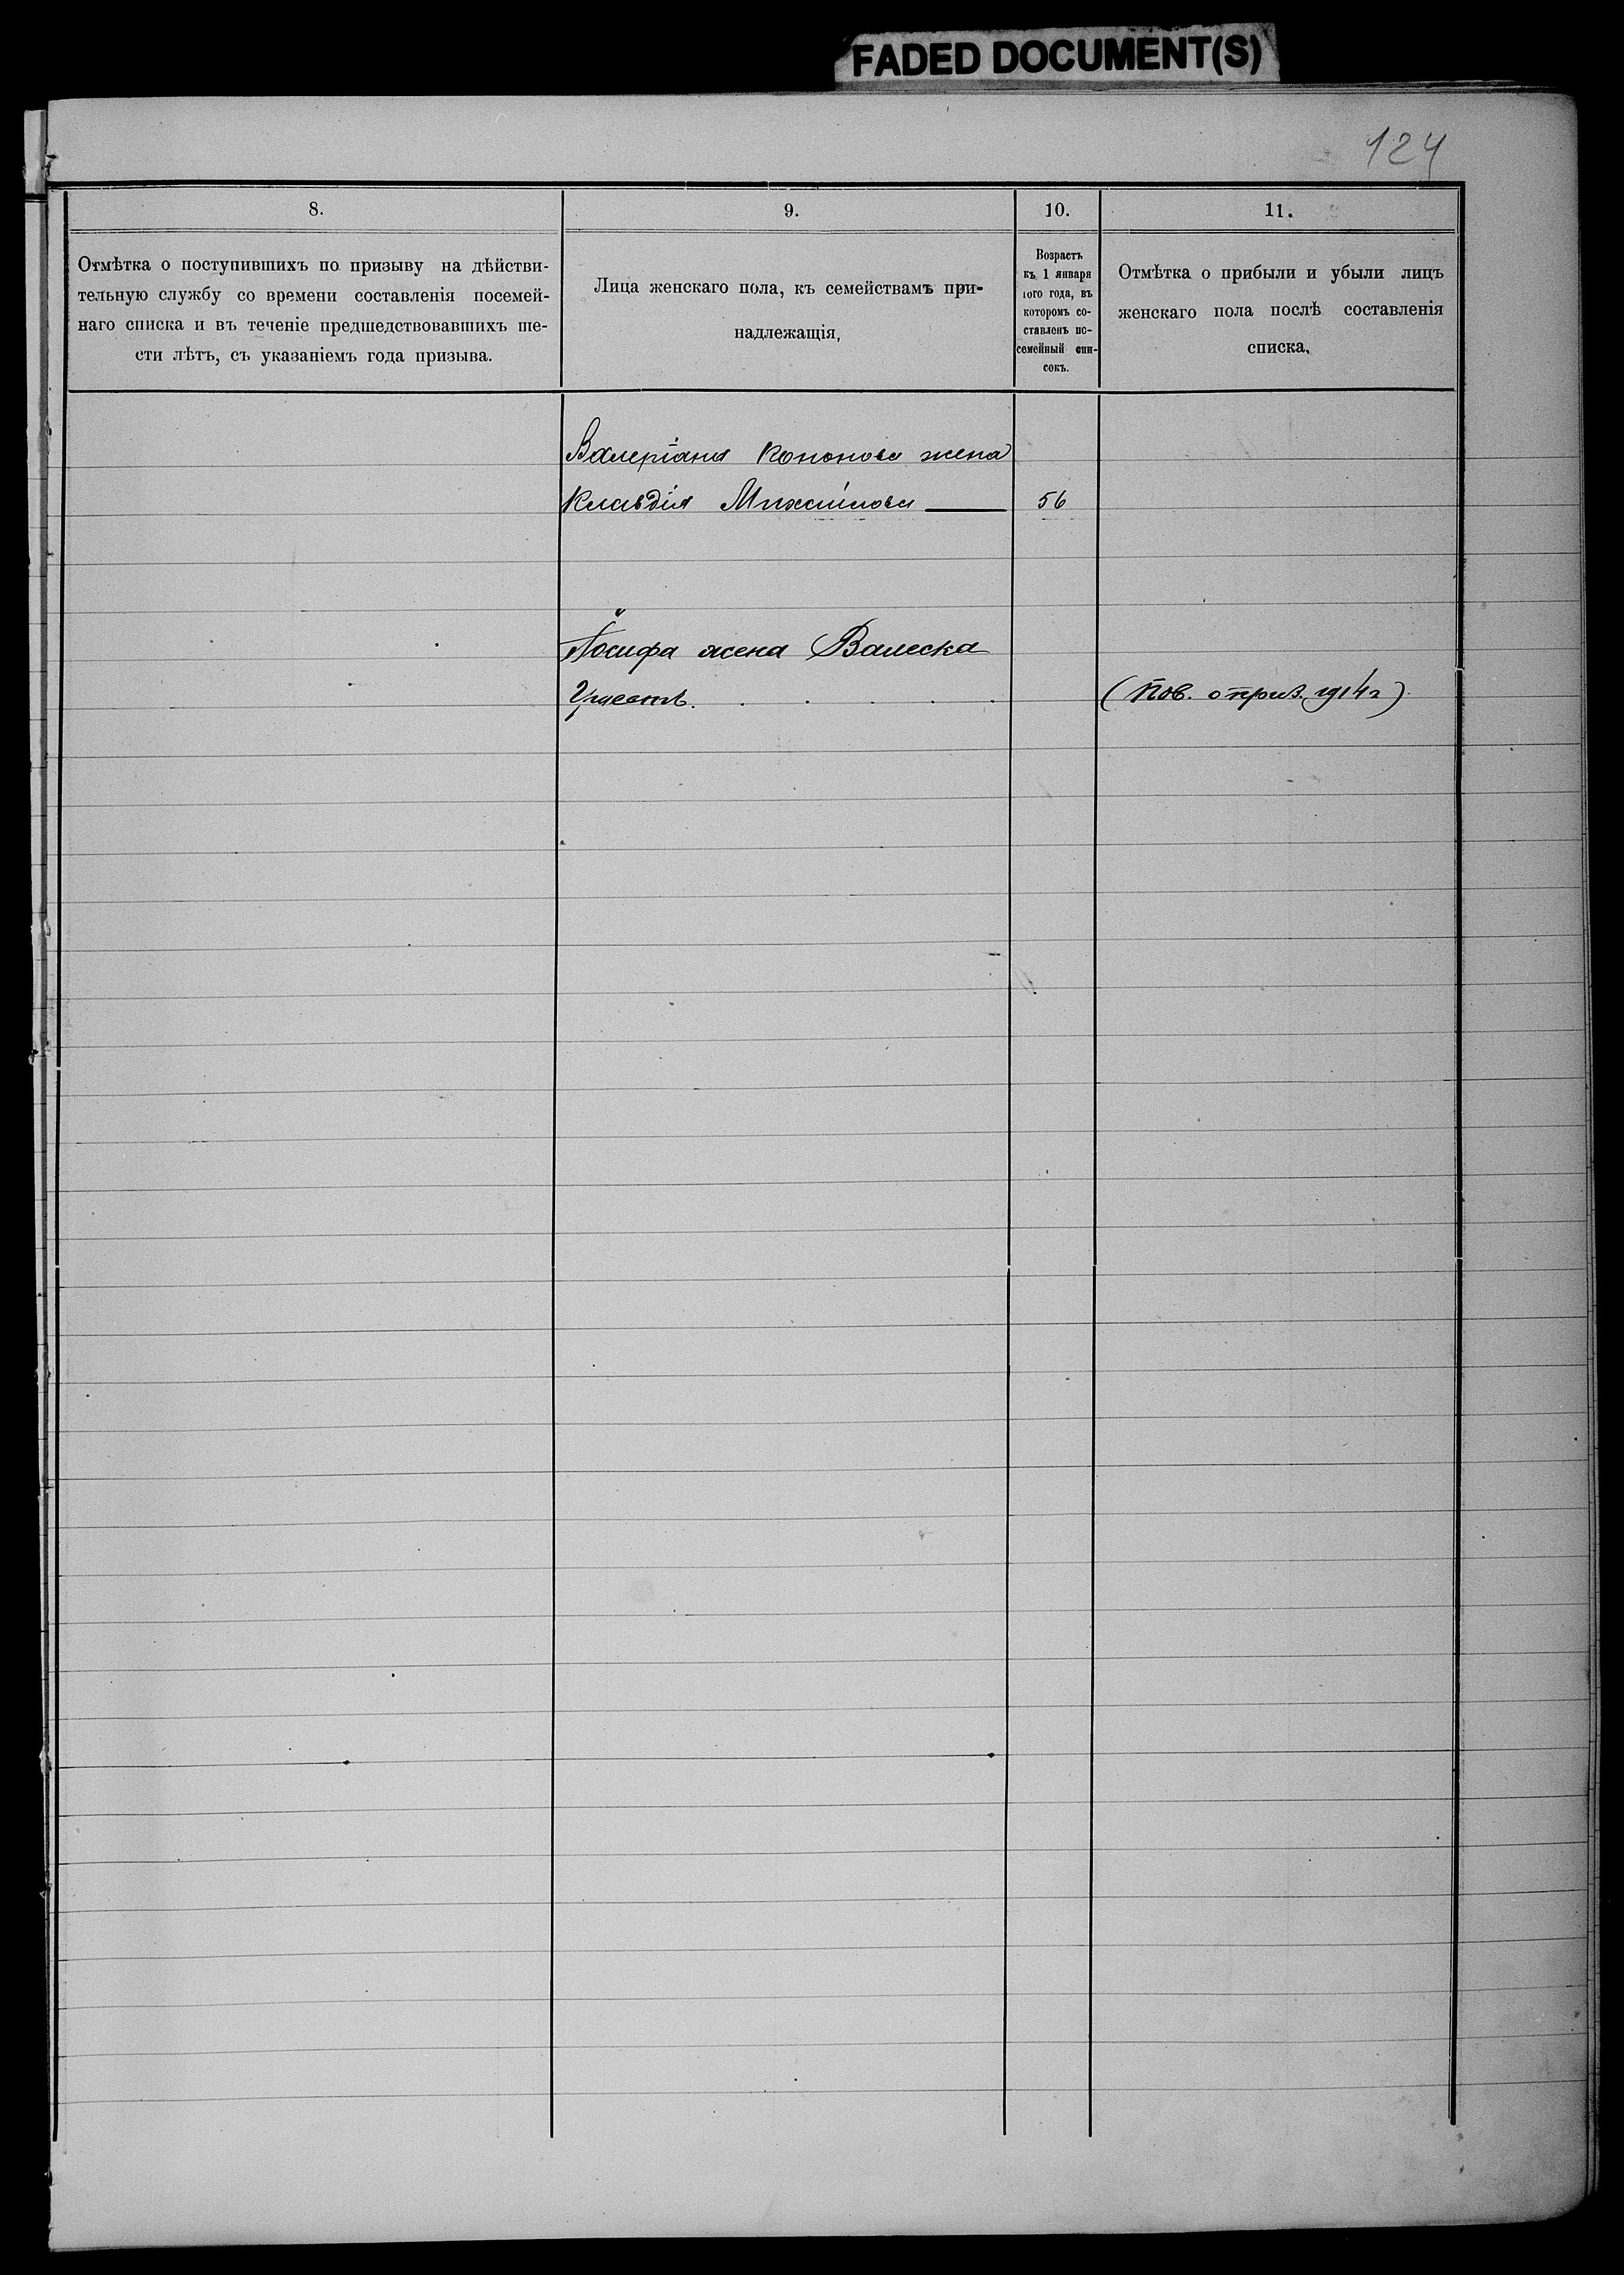 FADED DOCUMENT(S)
124
8.
Отмѣтка о поступившихъ по призыву на дѣйстви-
тельную службу со времени составленія посемей-
наго списка и въ теченіе предшедствовавшихъ ше-
сти лѣтъ, съ указаніемъ года призыва.
9.
Лица женскаго пола, къ семействамъ при-
надлежащія,
10.
Возрастъ
къ 1 января
того года, въ
которомъ со-
ставленъ по-
семейный спи-
сокъ.
11.
Отмѣтка о прибыли и убыли лицъ
женскаго пола послѣ составленія
списка,
Валеріана Кононова жена
Клавдія Михайлова 56
Іосифа жена Валеска
(Пов. о приз. 1914 г)